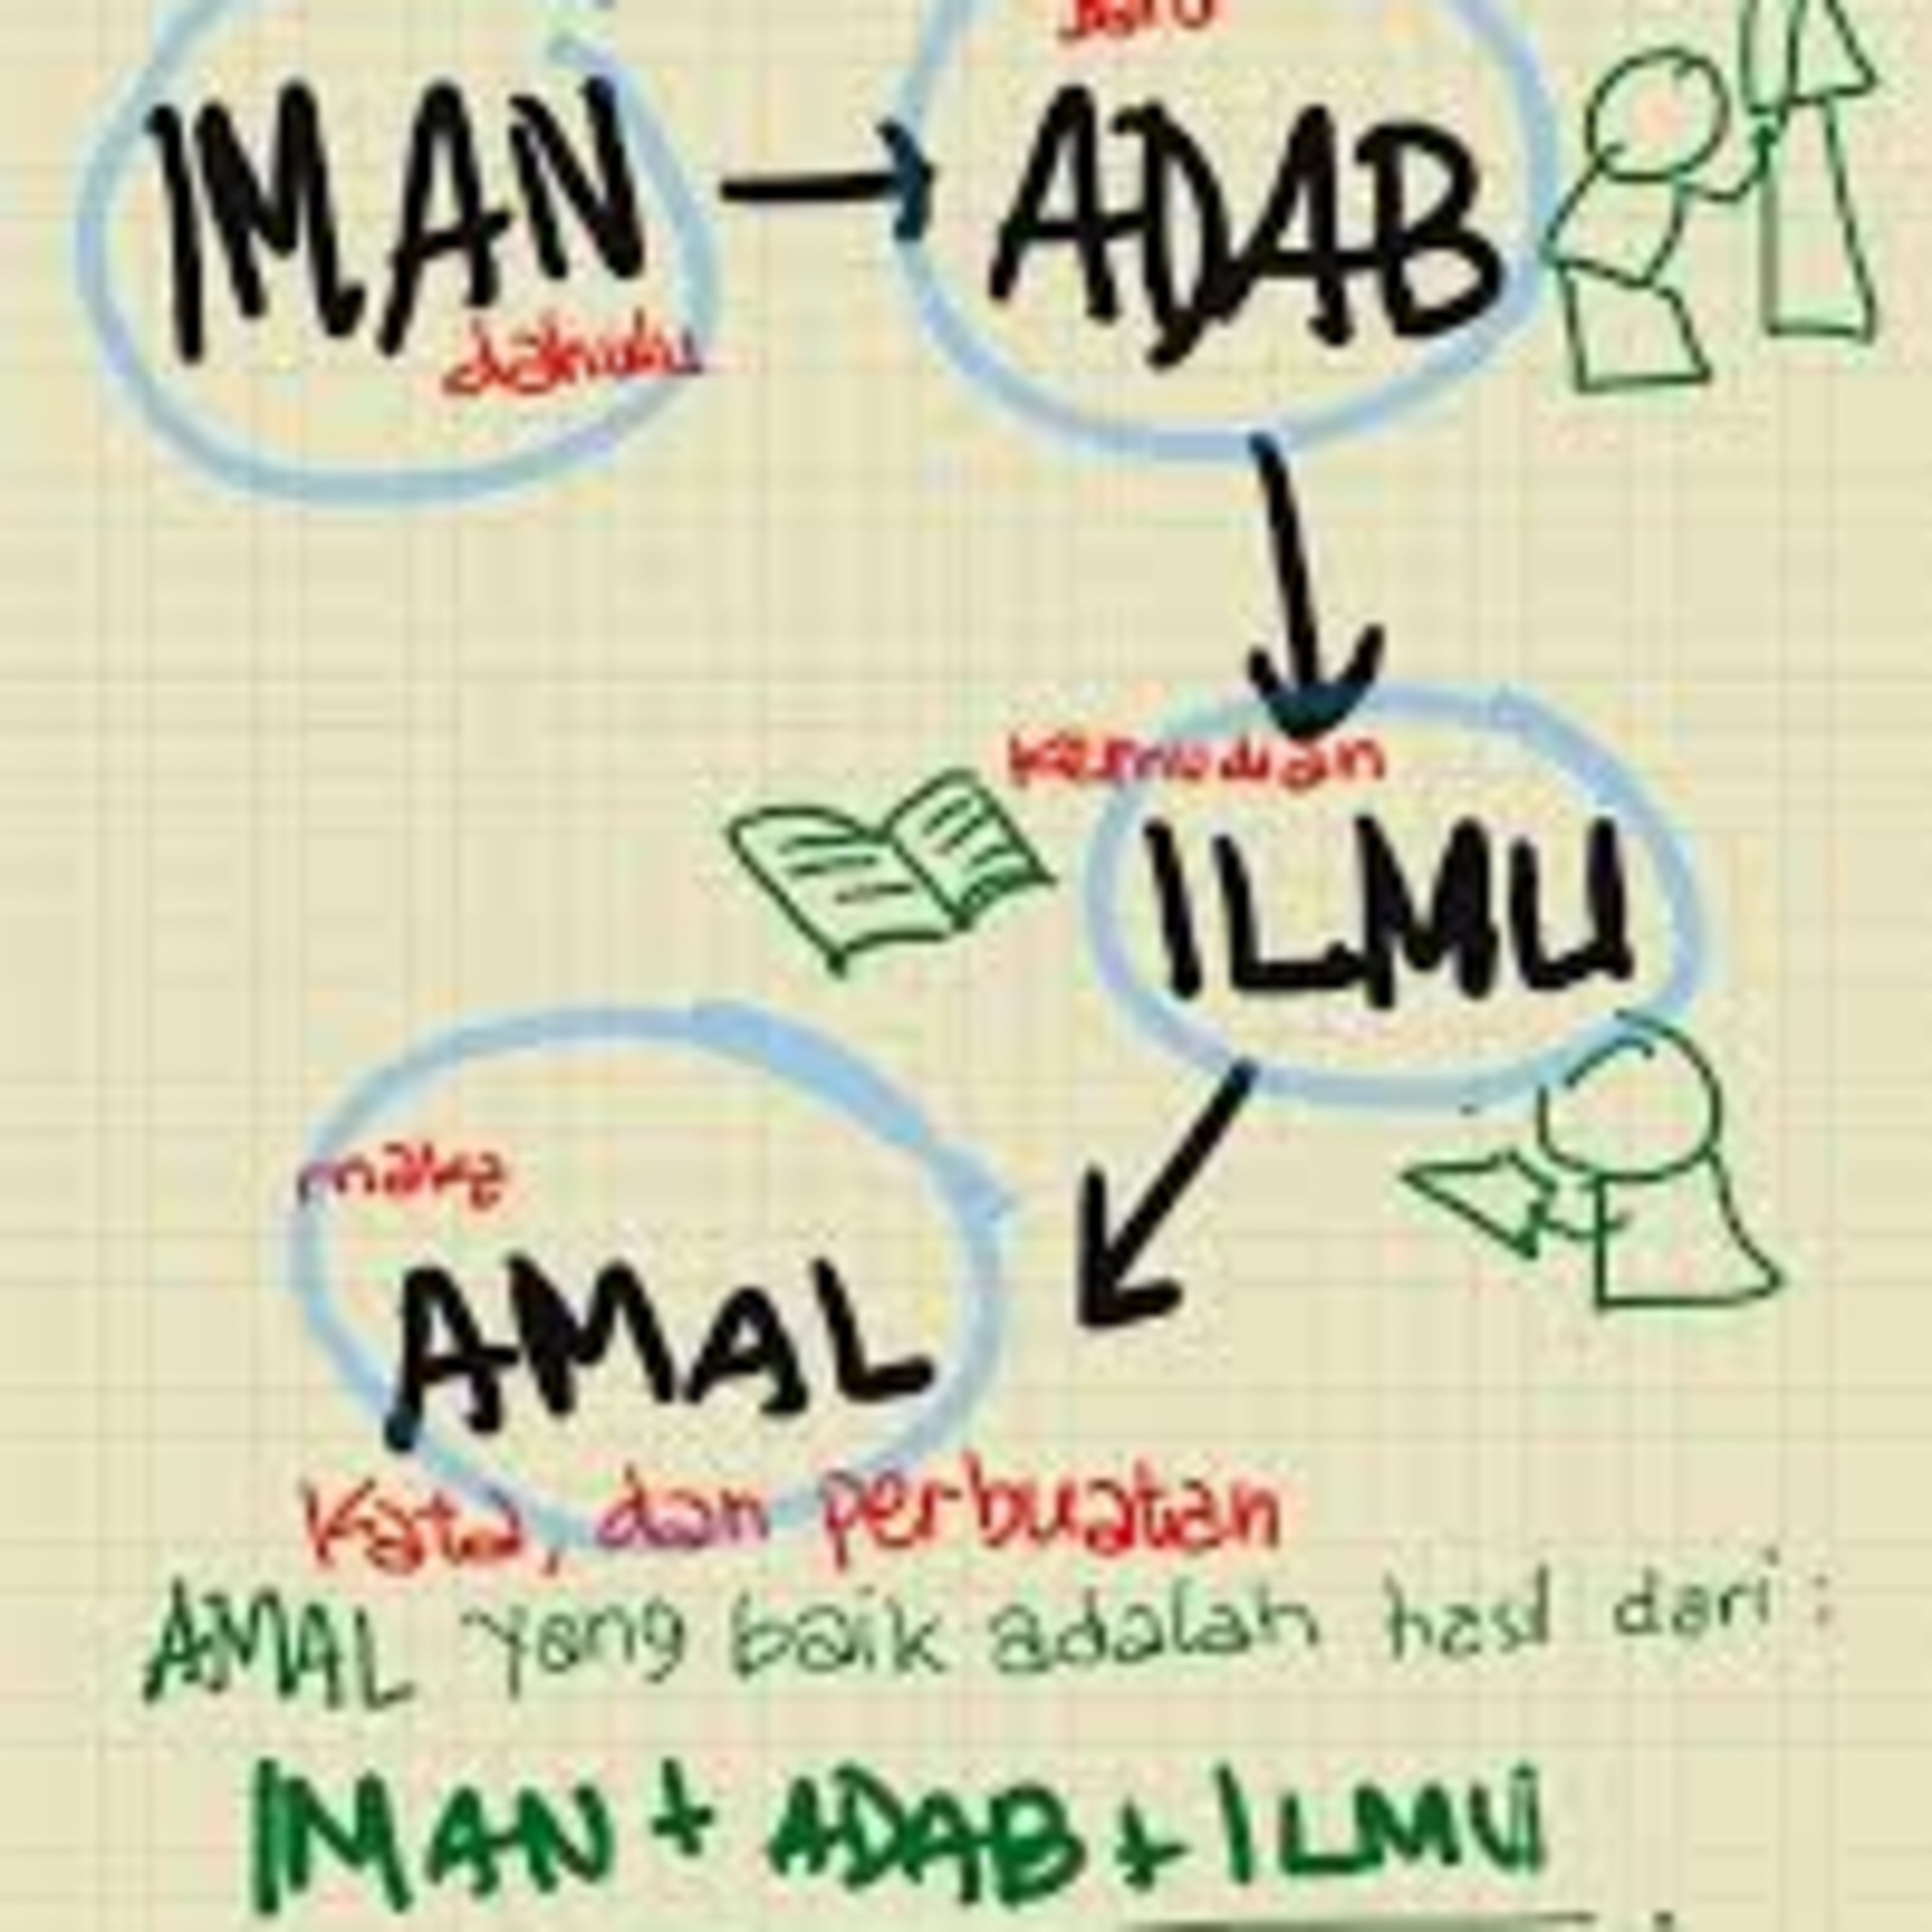 IMAN
dahulu
baru
ADAB
kemudian
ILMU
maka
AMAL
Kata, dan perbuatan
AMAL yang baik adalah hasil dari :
IMAN + ADAB + ILMU